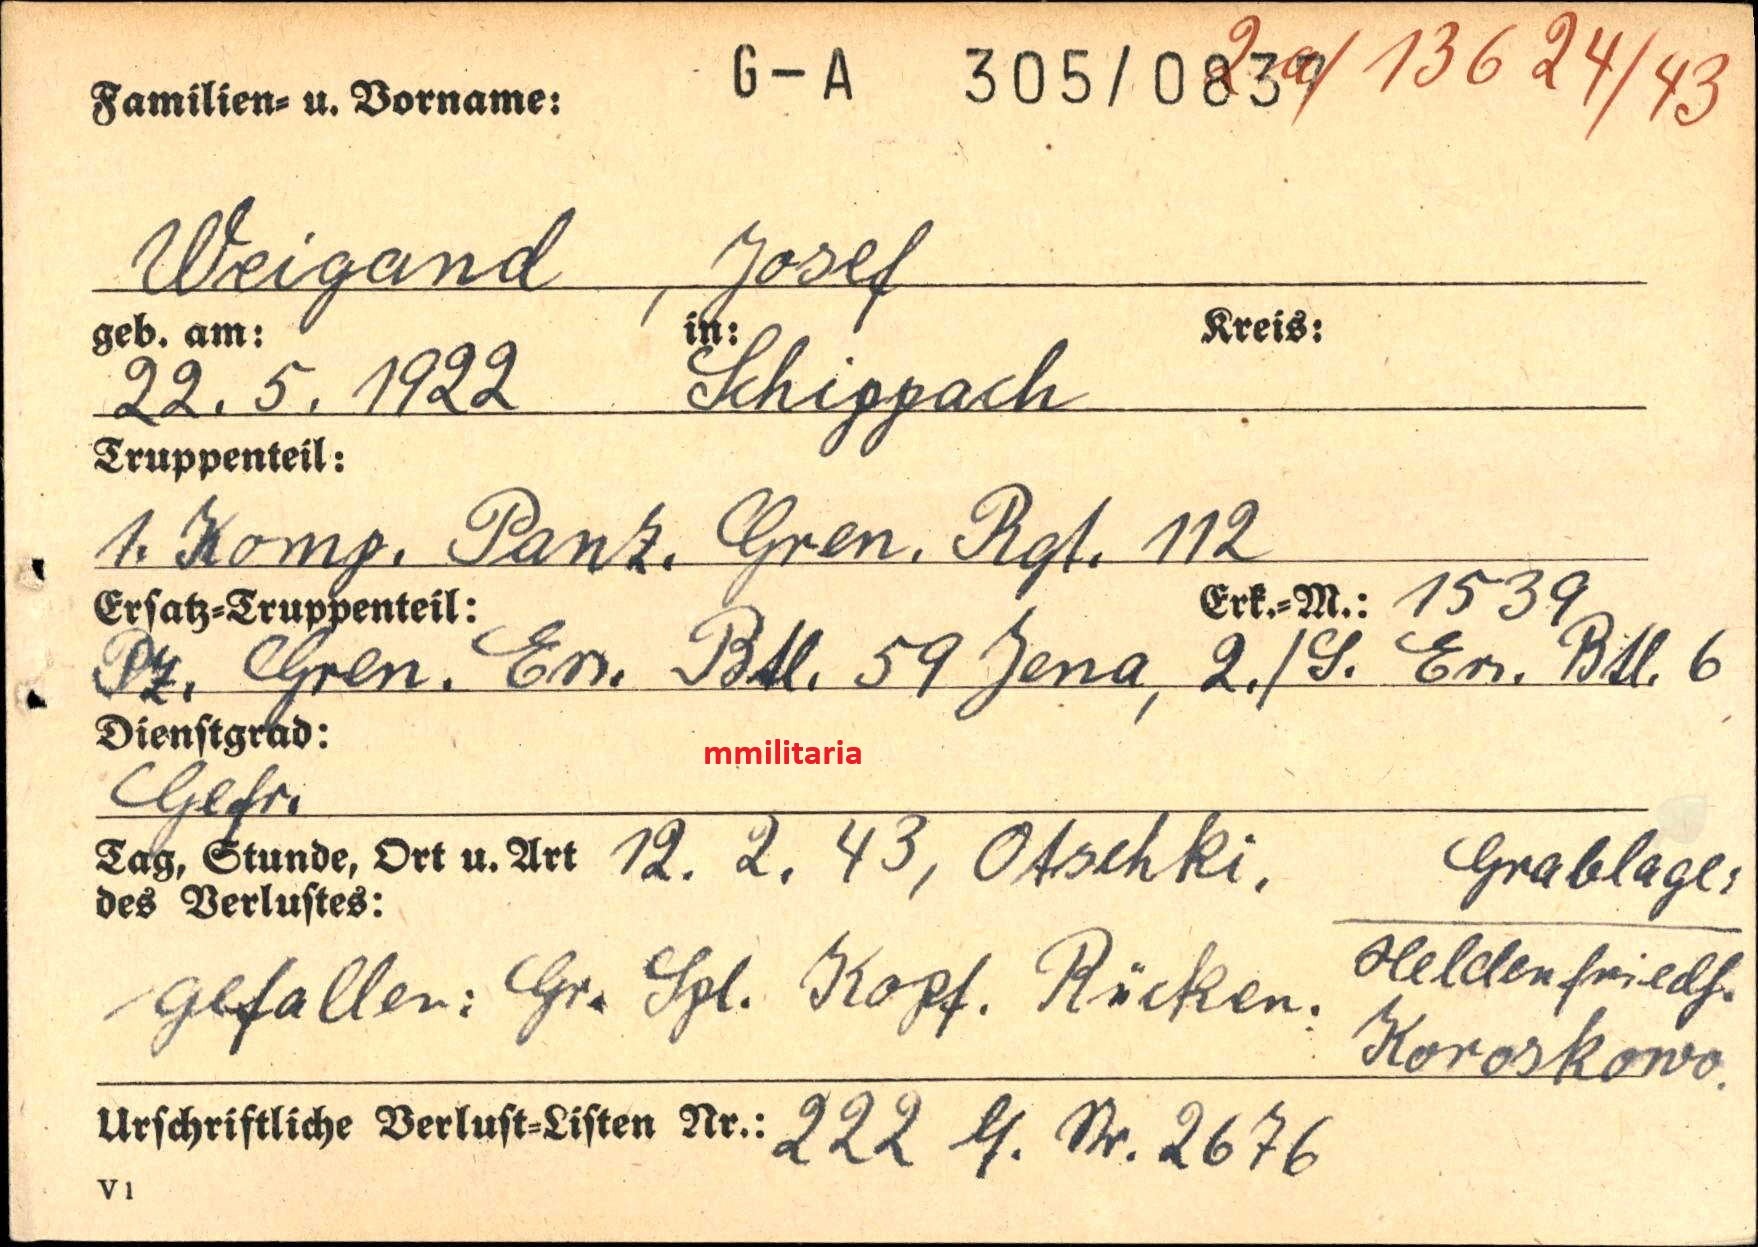 G-A 305/0837 2a/ 13624/43
Familien- u. Vorname:
Weigand, Josef
geb. am: in: Kreis:
22. 5. 1922 Schippach
Truppenteil:
1. Komp. Panz. Gren. Rgt. 112
Ersatz-Truppenteil: Erk.-M.: 1539
Pz. Gren. Ers. Btl. 59 Jena, 2./S. Ers. Btl. 6
Dienstgrad:
mmilitaria
Gefr.
Tag, Stunde, Ort u. Art 12. 2. 43, Otschki.
des Verlustes:
gefallen: Gr. Spl. Kopf. Rücken.
Grablage:
Heldenfriedh.
Koroskowo.
Urschriftliche Verlust-Listen Nr.: 222 lf. Nr. 2676
V1